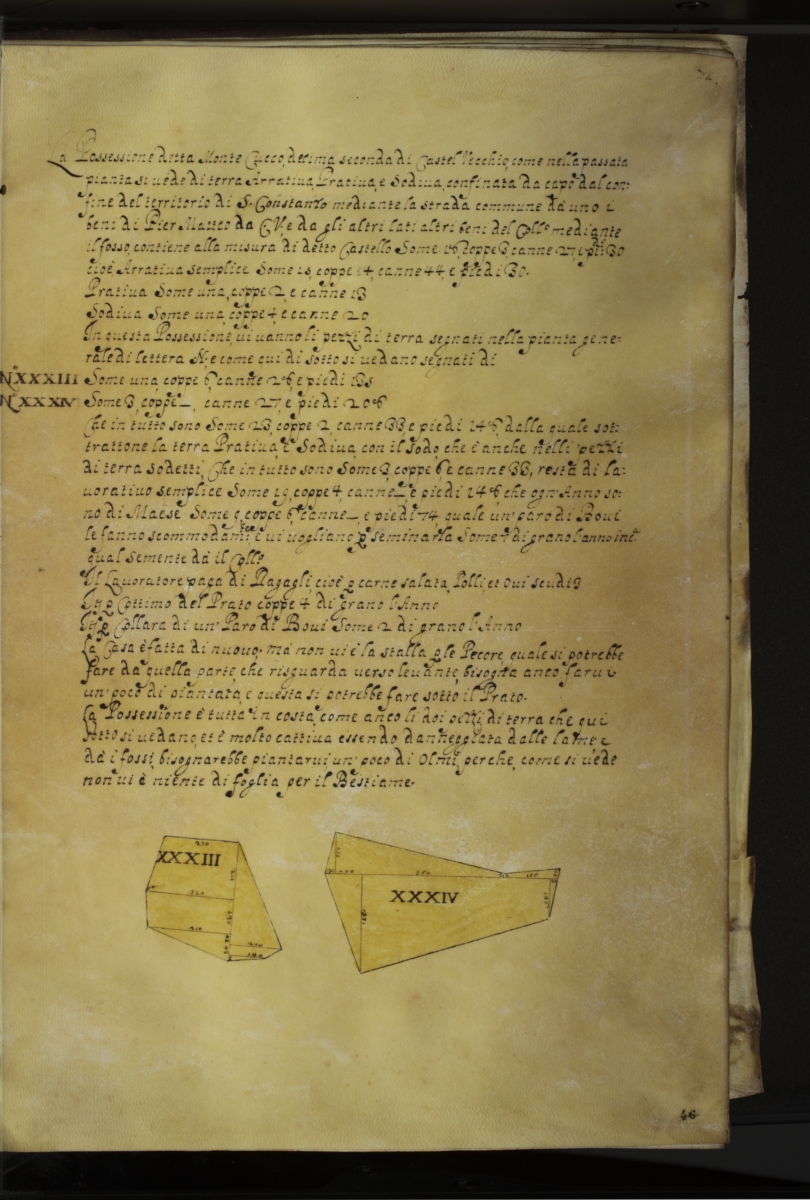 La Possessione detta Monte Cucco, decima seconda di Castel Vecchio, come nella passata
pianta si uede di terra Arratiua, Pratiua, e Sodiua, confinata da capo dal con=
fine del territorio di S. Constanzo mediante la strada commune da uno i
beni di Pier Matteo da e da gli altri lati altri beni del Coll.º mediante
il fosso, contiene alla misura di detto Castello Some coppe 3 canne 27 e pdi 30
cioè, Arratiua semplice Some coppe 4, canne 44, e piedi 30.
Pratiua Some una, coppe 2, e canne 13
Sodiua Some una, coppe 4 e canne 20
In questa Possessione, ui uanno li pezzi di terra segnati nella pianta gene=
rale di lettera N, e come qui di sotto si uedano segnati di
Nº XXXIII Some una coppe 6 canne 26, e piedi
Nº XXXIV Some 3, coppe _, canne 27 e piedi 206
Che in tutto sono Some 23, coppe 2, canne 33 e piedi 146, dalla quale sot=
trattone la terra Pratiua, e Sodiua, con il sodo, che è anche nelli pezzi
di terra sodetti, Che in tutto sono Some 3, coppe 6 e canne 33, resta di la=
uoratiuo semplice Some 19, coppe 4, canne _ e piedi 146, che ogn'Anno so=
no di Maese Some 9, coppe 6 canne _, e piedi 74 quale un' paro di Boui
le fanno scommodamte, e ui uogliano p seminarla Some di grano l'anno int.
qual Semente dà il Coll.º
Il Lauoratore paga di Regagli, cioè p carne salata, Polli et Oui scudi 3
It p Cottimo del Prato coppe 4 di grano l'Anno
It p Collara di un' Paro di Boui Some 2 di grano l'Anno
La Casa è fatta di nuouo, ma non ui è la stalla p le Pecore, quale si potrebbe
fare da quella parte, che risguarda uerso leuante, bisogna anco farui
un' poco di piantata, e questa si potrebbe fare sotto il Prato.
La Possessione è tutta in costa, come anco li doi pezzi di terra che qui
sotto si uedano, et è molto cattiua essendo danneggiata dalle lame e
da i fossi, bisognarebbe piantarui un' poco di Olmi, perche, come si uede
non ui è niente di foglia per il Bestiame.
XXXIII
XXXIV
46